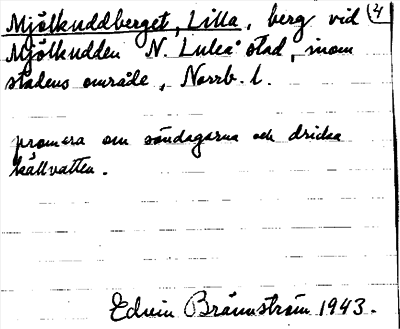 Mjölkuddberget, Lilla, berg vid (4
Mjölkudden N. Luleå stad, inom
stadens område, Norrb. l.
promera om söndagarna och dricka
källvatten.
Edvin Brännström 1943.